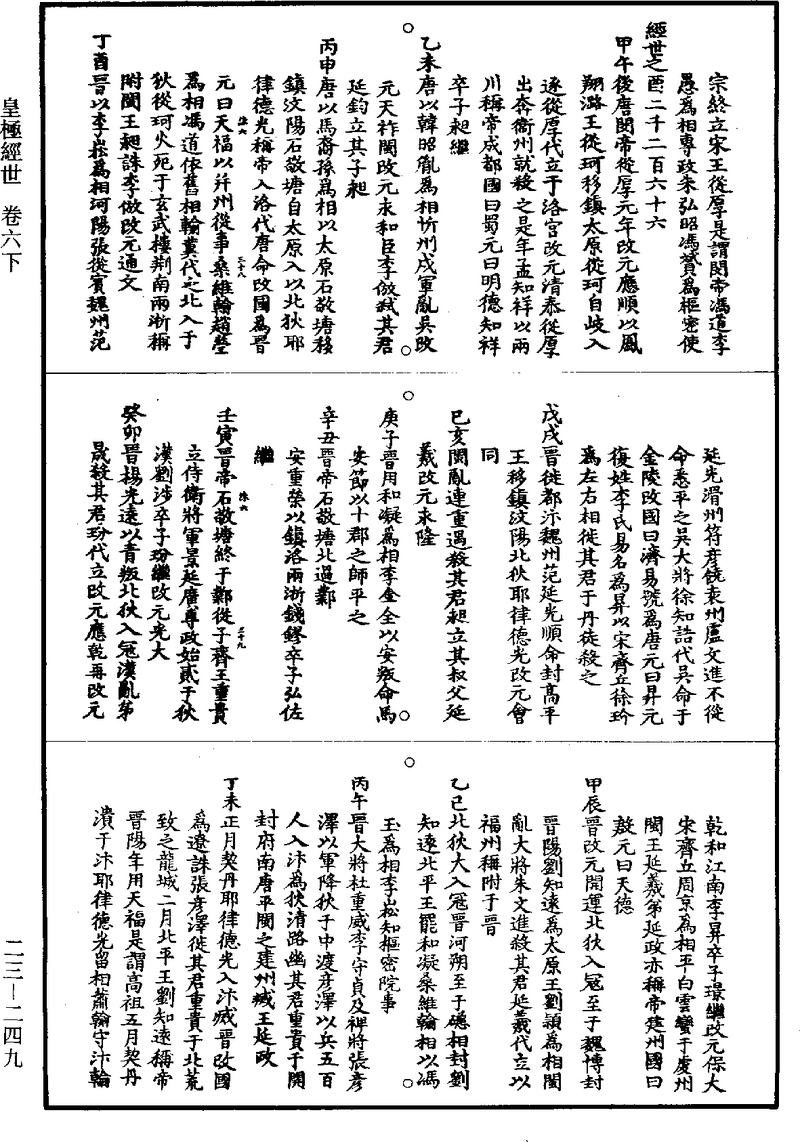 皇極經世　卷六下
宗終立宋王從厚是謂閔帝馮道李
愚爲相專政朱弘昭馮贇爲樞密使
經世之酉二千二百六十六
甲午後唐閔帝從厚元年改元應順以鳳
翔潞王從珂移鎮太原從珂自岐入
逐從厚代立于洛宮改元清泰從厚
出奔衞州就殺之是年孟知祥以兩
川稱帝成都國曰蜀元曰明德知祥
卒子昶繼
乙未唐以韓昭胤爲相忻州戍軍亂吳改
元天祚閩改元永和臣李倣弒其君
延鈞立其子昶
丙申唐以馬裔孫爲相以太原石敬塘移
鎮汶陽石敬塘自太原入以北狄耶
律德光稱帝入洛代唐命改國爲晉
元曰天福以幷州從事桑維翰趙瑩
爲相馮道依舊相翰冀代之北入于
狄從珂火死于玄武樓荆南兩浙稱
附閩王昶誅李倣改元通文
丁酉晉以李崧爲相河陽張從賓魏州范
延光滑州符彥饒袁州盧文進不從
命悉平之吳大將徐知誥代吳命于
金陵改國曰濟易號爲唐元曰昇元
復姓李氏易名爲昇以宋齊丘徐玠
爲左右相徙其君于丹徒殺之
戊戌晉徙都汴魏州范延光順命封高平
王移鎮汶陽北狄耶律德光改元會
同
己亥閩亂連重遇殺其君昶立其叔父延
羲改元永隆
庚子晉用和凝爲相李金全以安叛命馬
安節以十郡之師平之
辛丑晉帝石敬塘北過鄴
安重榮以鎮洛兩浙錢鏐卒子弘佐
繼
壬寅晉帝石敬塘終于鄴從子齊王重貴
立侍衞將軍景延廣專政始貳于狄
漢劉涉卒子玢繼改元光大
癸卯晉楊光遠以青叛北狄入寇漢亂弟
晟殺其君玢代立改元應乾再改元
乾和江南李昇卒子璟繼改元保大
宋齊丘周宗爲相平白雲蠻于虔州
閩王延羲弟延政亦稱帝建州國曰
殷元曰天德
甲辰晉改元開運北狄入寇至于魏博封
晉陽劉知遠爲太原王劉頴爲相閩
亂大將朱文進殺其君延羲代立以
福州稱附于晉
乙巳北狄大入寇晉河朔至于磁相封劉
知遠北平王罷和凝桑維翰相以馮
玉爲相李崧知樞密院事
丙午晉大將杜重威李守貞及裨將張彥
澤以軍降狄于中渡彥澤以兵五百
人入汴爲狄清路幽其君重貴于開
封府南唐平閩之建州烕王延政
丁未正月契丹耶律德光入汴烕晉改國
爲遼誅張彥澤徙其君重貴于北荒
致之龍城二月北平王劉知遠稱帝
晉陽年用天福是謂高祖五月契丹
潰于汴耶律德光留相蕭翰守汴翰
二三—二四九